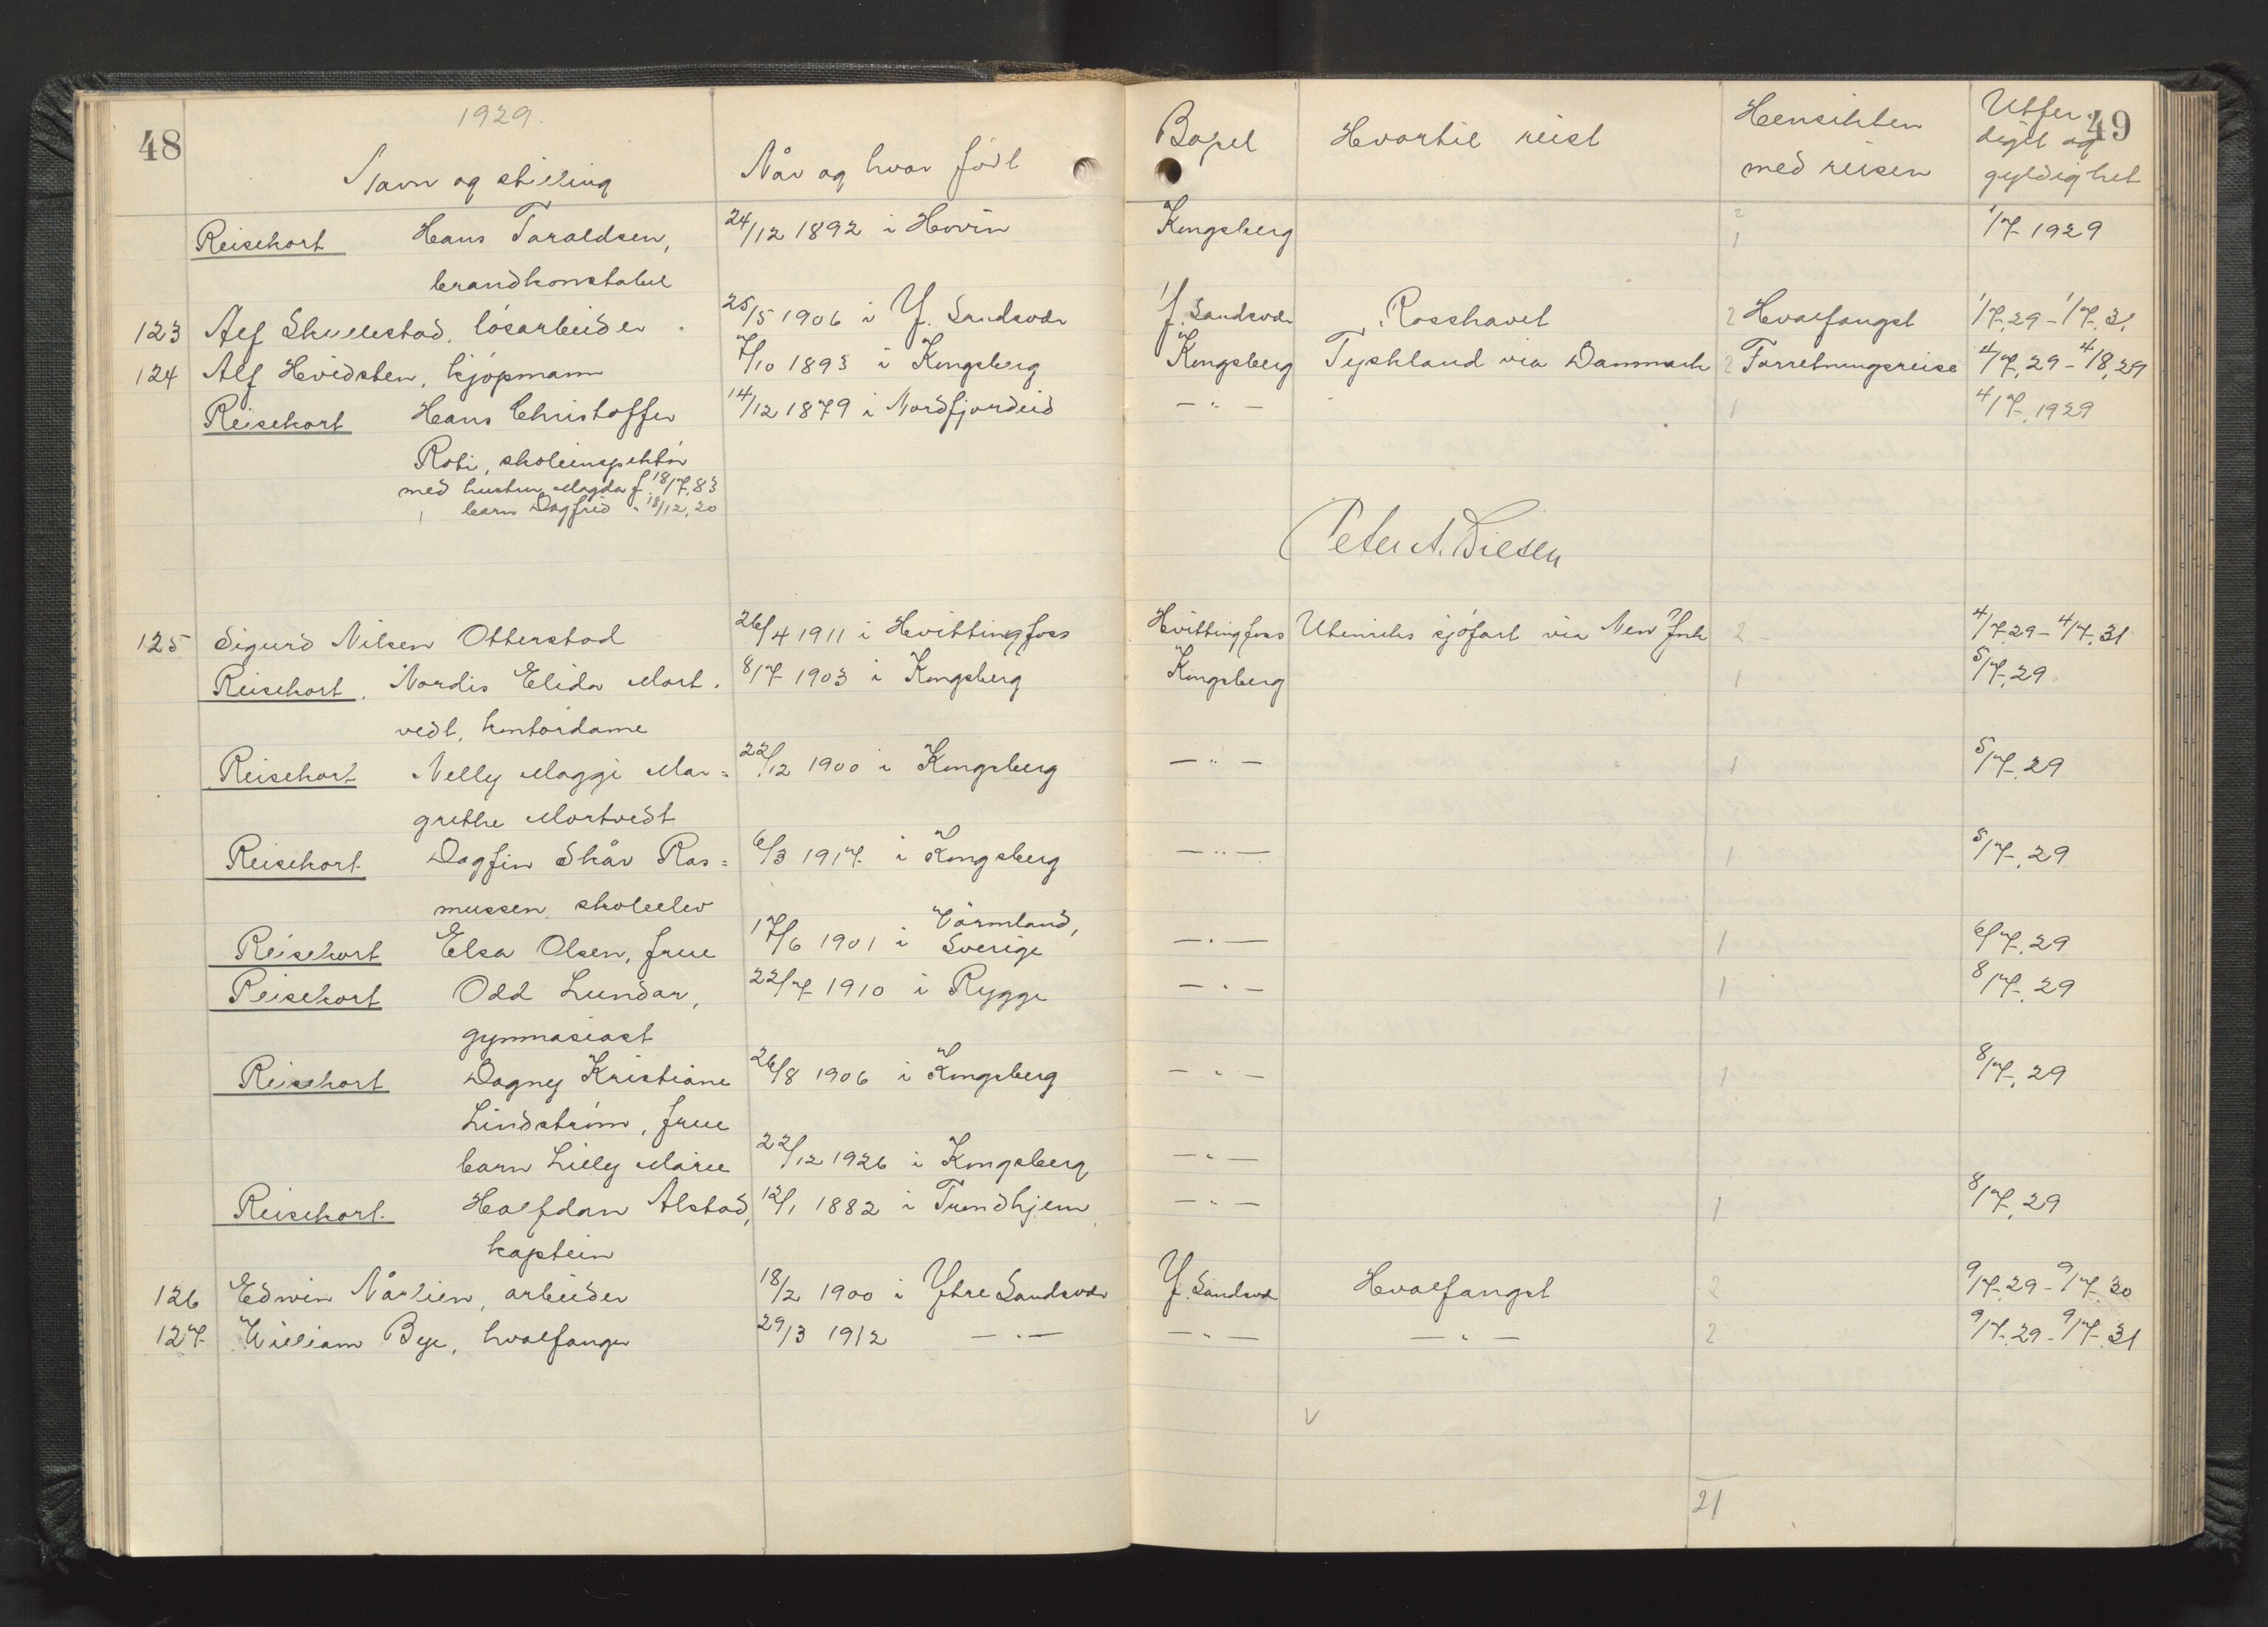 48
1929.
Navn og stilling
Når og hvor født
Bopel
Hvortil reist
Hensikten
med reisen
Utfer-
49
diget og
gyldighet
Reisekort Hans Taraldsen, 24/12 1892 i Hovin Kongsberg 2 1/7 1929
1
brandkonstabel
123 Alf Skullestad, løsarbeider. 25/5 1906 i Y. Sandsvær Y. Sandsvær Rosshavet 2 Hvalfangst 1/7.29-1/7.31
124 Alf Hvidsten, kjøpmann 7/10 1893 i Kongsberg Kongsberg Tyskland via Danmark 2 Forretningsreise 4/7.29-4/8.29
Reisekort Hans Christoffer 14/12 1879 i Nordfjordeid — " — 1 4/7.1929
Roti, skoleinspektør
med hustru Magda f. 18/7.83
1 barn Dagfrid " 18/12.20
Peter A. Diesen
125 Sigurd Nilsen Otterstad 26/4 1911 i Hvittingfoss Hvittingfoss Utenriks sjøfart via New York 2 - 4/7.29-4/7.31
Reisekort. Nordis Elida Mort- 8/7 1903 i Kongsberg Kongsberg 1 5/7.29
vedt, kontordame
Reisekort Nelly Maggi Mar= 22/12 1900 i Kongsberg — " — 1 5/7.29
grethe Mortvedt
Reisekort Dagfin Skår Ras= 6/3 1917 i Kongsberg — " — 1 5/7.29
mussen, skoleelev
Reisekort Elsa Olsen, frue 17/6 1901 i Värmland, — " — 1 6/7.29
Sverige
Reisekort Odd Lundar, 22/7 1910 i Rygge — " — 1 8/7.29
gymnasiast
Reisekort Dagny Kristiane 26/8 1906 i Kongsberg — " — 1 8/7.29
Lindstrøm, frue
barn Lilly Marie 22/12 1926 i Kongsberg — " —
Reisekort Halfdan Alstad, 12/1 1882 i Trondhjem — " — 1 8/7.29
kaptein
126 Edwin Nårlien, arbeider 18/2 1900 i Ytre Sandsvær Y. Sandsvær Hvalfangst 2 9/7.29-9/7.30
127 William Bye, hvalfanger 29/3 1912 — " — — " — — " — 2 9/7.29-9/7.31
V
21